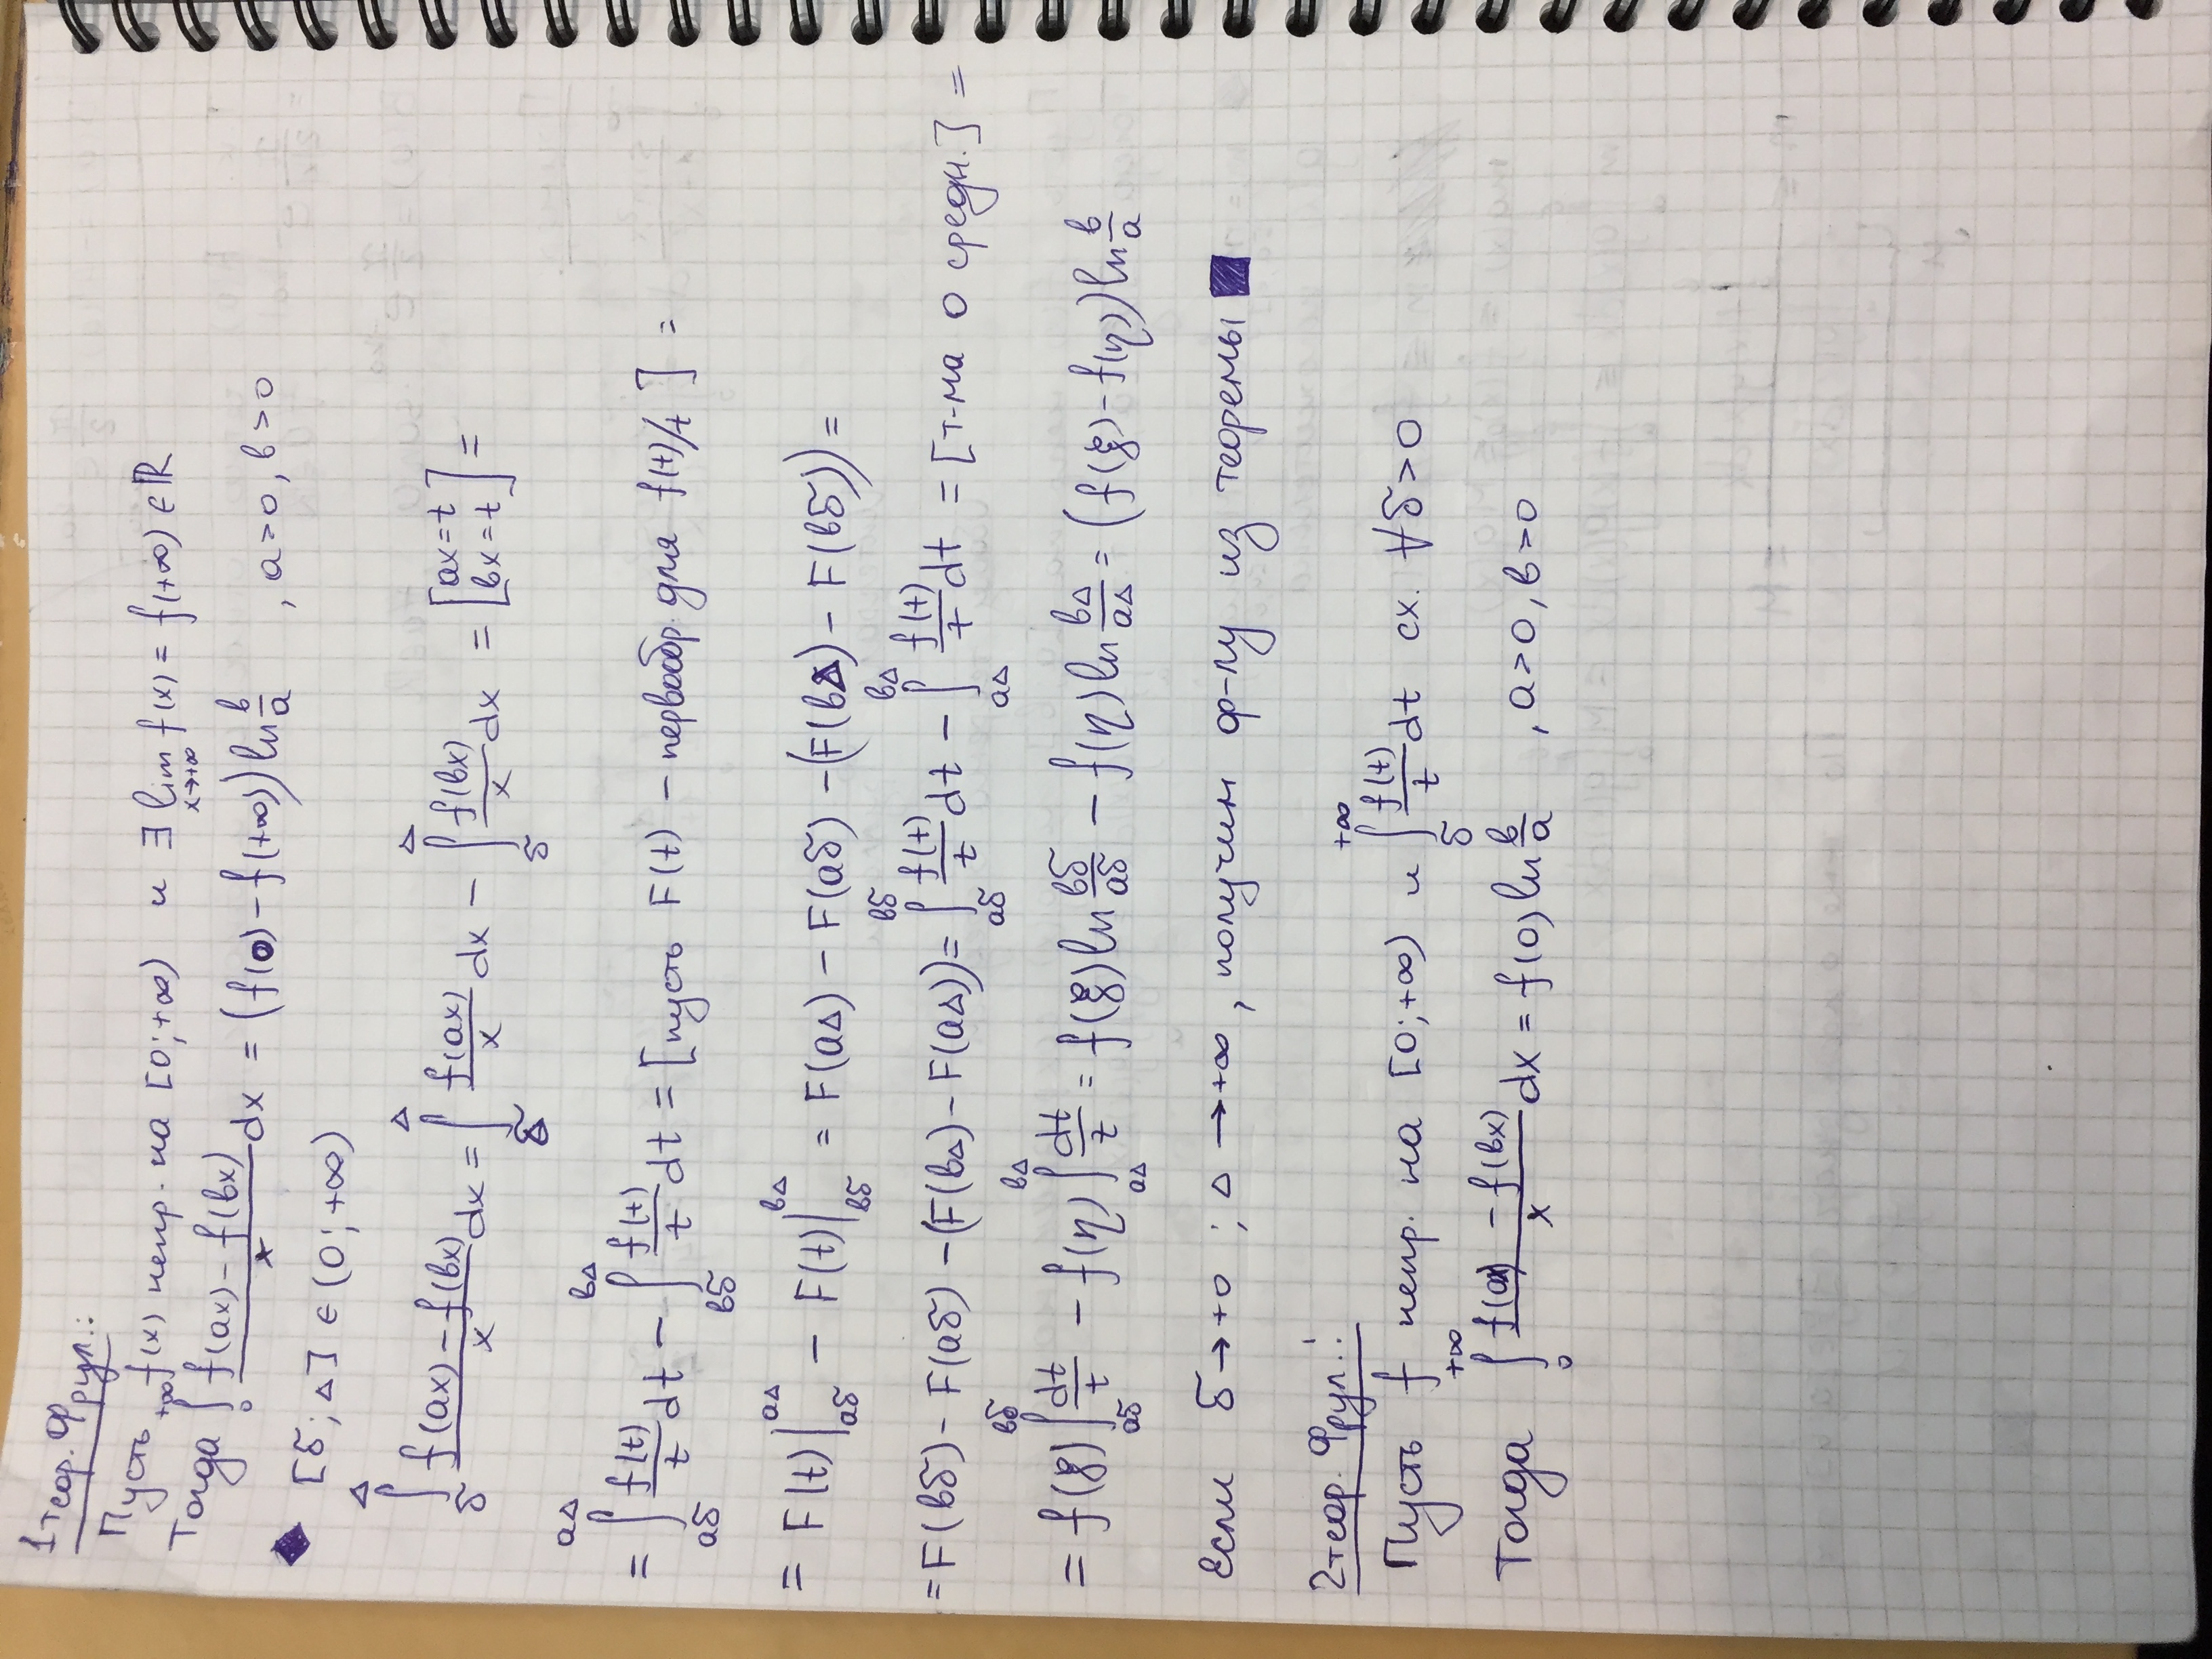 1 теор. Фрул.:
Пусть f(x) непр. на [0;+∞) и ∃ lim_{x→+∞} f(x) = f(+∞) ∈ ℝ
Тогда ∫_0^{+∞} (f(ax) − f(bx))/x dx = (f(0) − f(+∞)) ln b/a , a>0, b>0
◆ [δ; Δ] ∈ (0; +∞)
∫_δ^Δ (f(ax) − f(bx))/x dx = ∫_δ^Δ f(ax)/x dx − ∫_δ^Δ f(bx)/x dx = [ax=t bx=t] =
= ∫_{aδ}^{aΔ} f(t)/t dt − ∫_{bδ}^{bΔ} f(t)/t dt = [пусть F(t) − первообр. для f(t)/t ] =
= F(t)|_{aδ}^{aΔ} − F(t)|_{bδ}^{bΔ} = F(aΔ) − F(aδ) − (F(bΔ) − F(bδ)) =
= F(bδ) − F(aδ) − (F(bΔ) − F(aΔ)) = ∫_{aδ}^{bδ} f(t)/t dt − ∫_{aΔ}^{bΔ} f(t)/t dt = [т-ма о средн.] =
= f(ξ) ∫_{aδ}^{bδ} dt/t − f(η) ∫_{aΔ}^{bΔ} dt/t = f(ξ) ln bδ/aδ − f(η) ln bΔ/aΔ = (f(ξ) − f(η)) ln b/a
Если δ → +0 ; Δ → +∞, получим ф-лу из теоремы ■
2 теор. Фрул.:
Пусть f непр. на [0;+∞) и ∫_δ^{+∞} f(t)/t dt сх. ∀δ>0
Тогда ∫_0^{+∞} (f(ax) − f(bx))/x dx = f(0) ln b/a , a>0, b>0